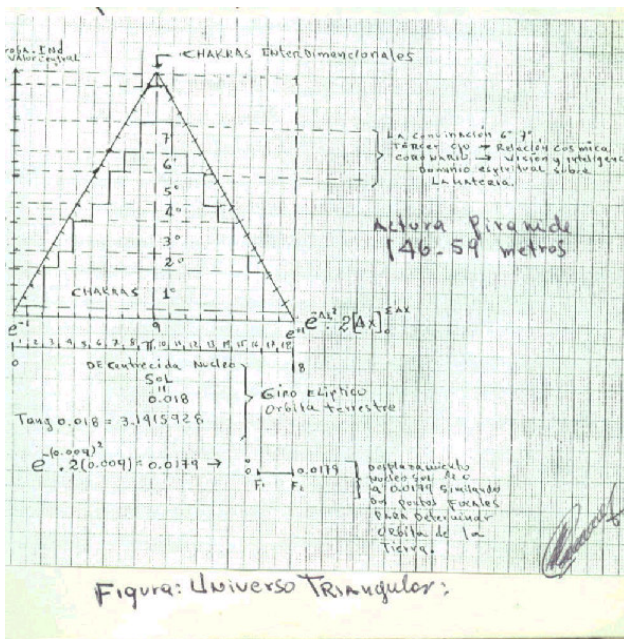 CHAKRAS EnterDimancionales
Valor central
7°
6°
5°
4°
3°
2°
CHAKRAS 1°
La convinación 6° 7°
Tercer ojo → Relación cosmica
CORONARIO → Visión y inteligenc
Dominio espiritual sobre
LA Materia.
Altura Piramide
146.59 metros
e⁻¹ 9 e⁻¹
1 2 3 4 5 6 7 8 9 10 11 12 13 14 15 16 17 18
0 18
DEcentrecida Nucleo
SOL
"
0.018
Tang 0.018 = 3.1415928
Giro Eliptico
Orbita terrestre
e^-(0.009)² . 2(0.009) = 0.0179 →
0 0.0179
F₁ F₂
Desplazamiento
Nucleo SOL de 0
a 0.0179 Similando
Dos puntos Focales
PARA Determinar
ORbita de la
Tierra.
Figura: Universo Triangular: